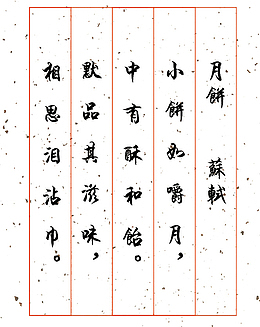 月餅 蘇軾
小餅如嚼月，
中有酥和飴。
默品其滋味，
相思淚沾巾。